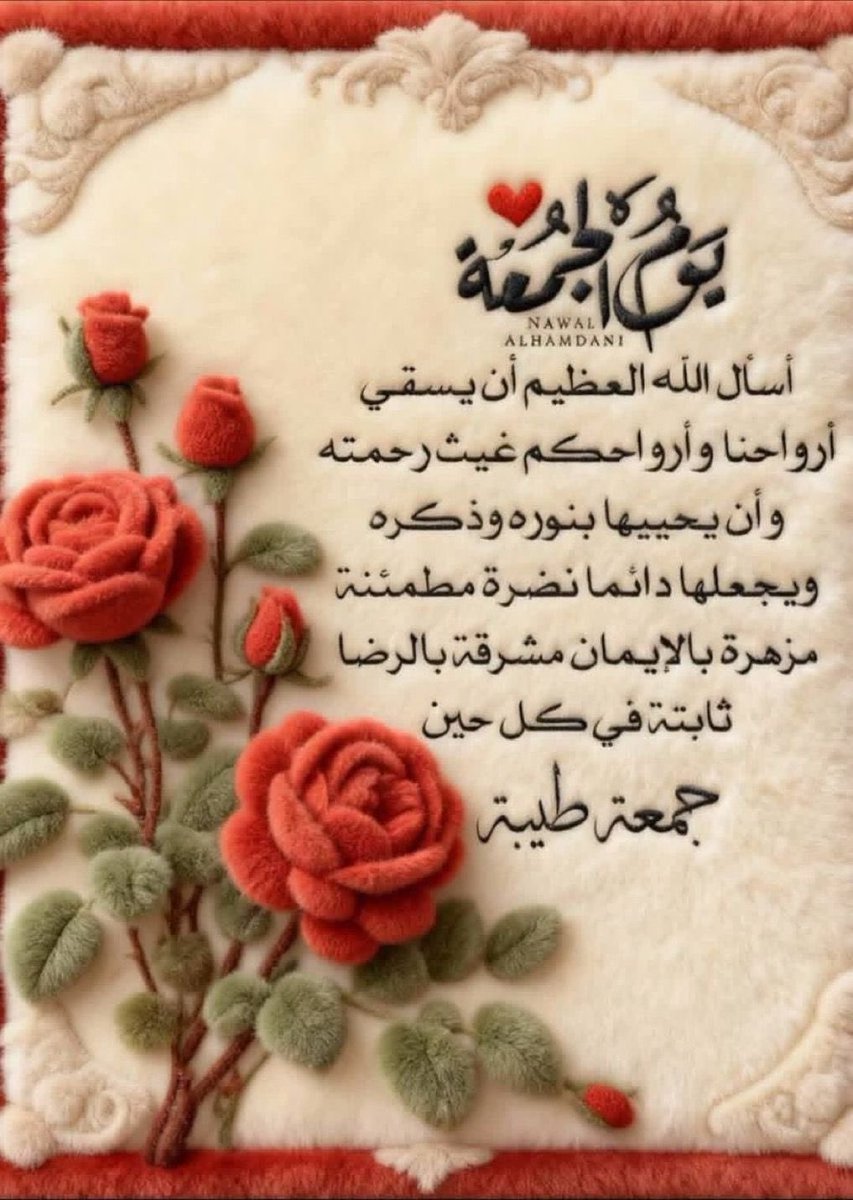 يَومُ الجُمُعَة
NAWAL
ALHAMDANI
أسأل الله العظيم أن يسقي
أرواحنا وأرواحكم غيث رحمته
وأن يحييها بنوره وذكره
ويجعلها دائما نضرة مطمئنة
مزهرة بالإيمان مشرقة بالرضا
ثابتة في كل حين
جمعة طيبة